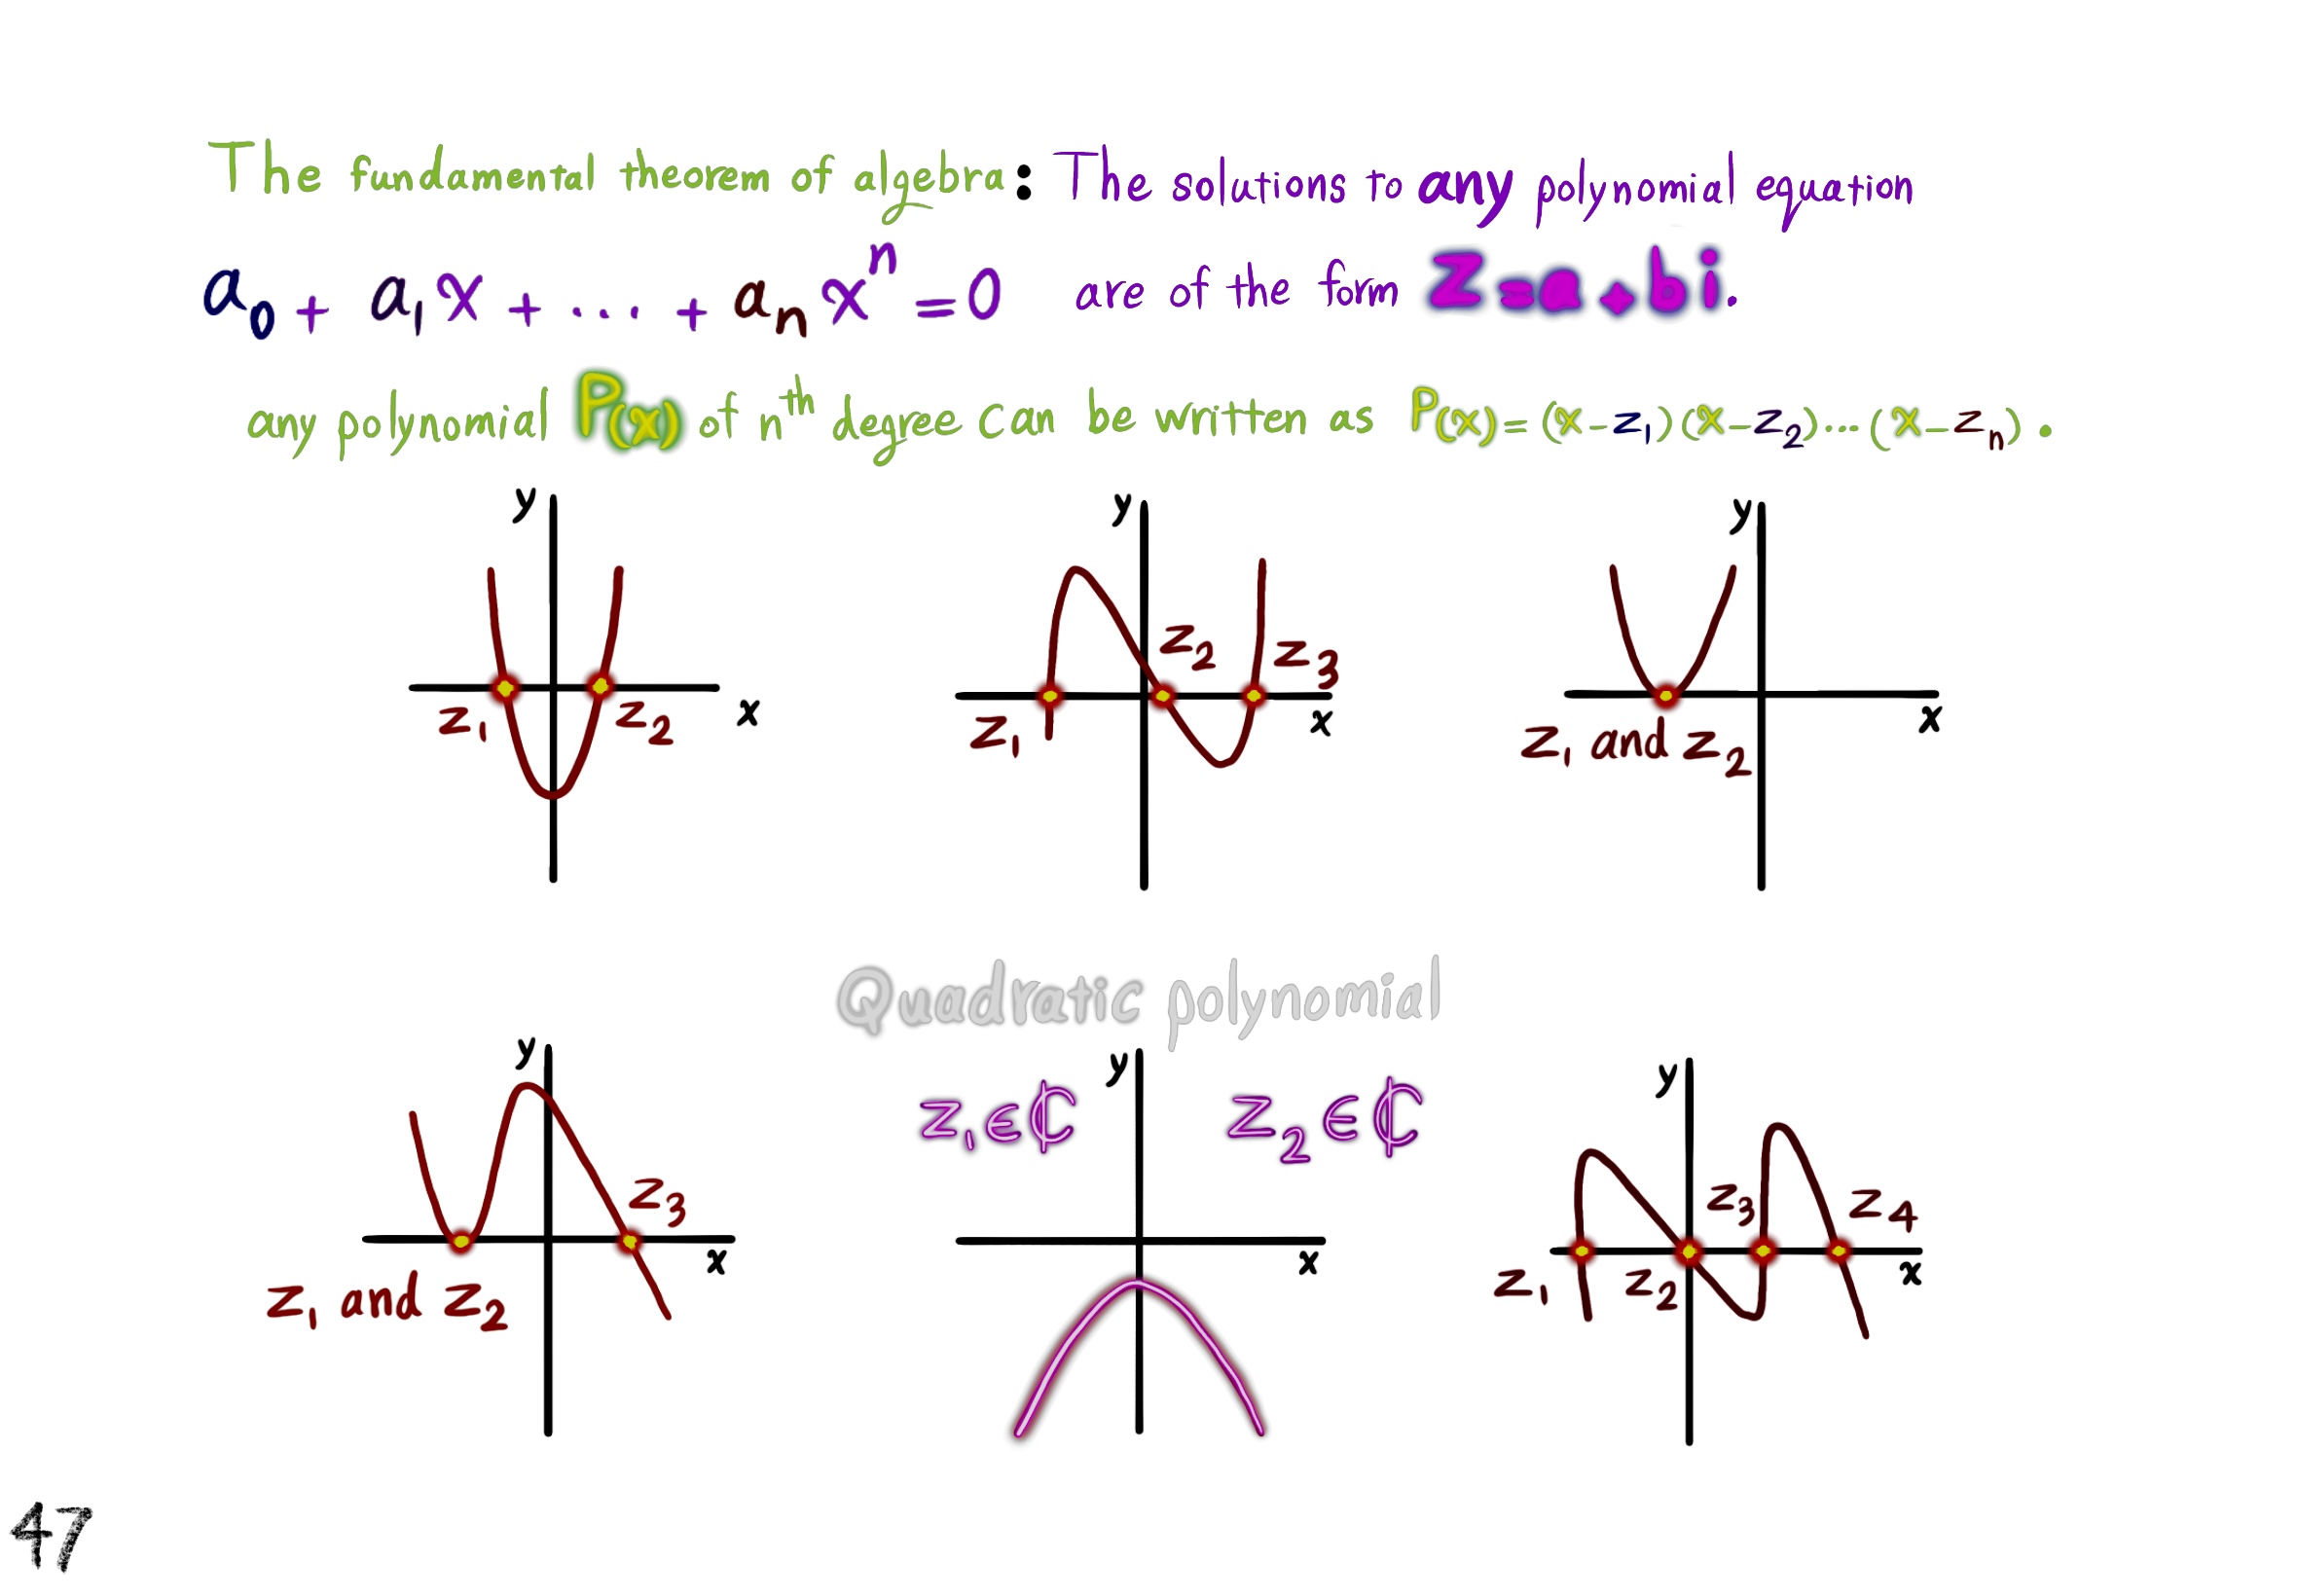 The fundamental theorem of algebra: The solutions to any polynomial equation
a₀ + a₁x + ... + aₙxⁿ = 0 are of the form z = a + bi.
any polynomial P(x) of nᵗʰ degree can be written as P(x) = (x-z₁)(x-z₂)...(x-zₙ).
y
x
z₁
z₂
y
z₂
z₃
z₁
x
y
x
z₁ and z₂
Quadratic polynomial
y
z₃
x
z₁ and z₂
y
z₁∈ℂ
z₂∈ℂ
x
y
z₃
z₄
z₁
z₂
x
47